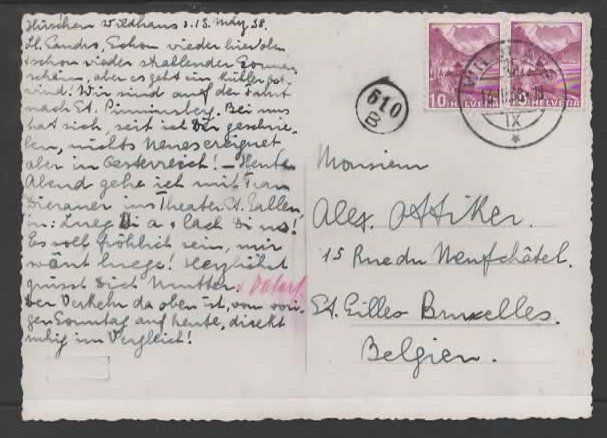 Wildhaus d. 13. März 38.
Schon wieder hier oben
schon wieder strahlender Sonnen-
schein, aber es geht ein kühler Ost-
wind. Wir sind auf der Fahrt
nach St. Bei uns
hat sich, seit ich Dir geschrie-
ben, nichts Neues ereignet
aber in Oesterreich! – Heute
Abend gehe ich mit Frau
ins Theater St. Gallen
in: Lueg Di a, lach Di us!
Es soll fröhlich sein, mir
wänt luege! Herzlichst
grüsst Dich Mutter. & Vater
Der Verkehr da oben ist, von vori-
gen Sonntag auf heute, direkt
ruhig im Vergleich!
10 HELVETIA
HELVETIA
IX
510
B
Monsieur
Alex. Attiker.
15 Rue du Neufchâtel.
St. Gilles Bruxelles.
Belgien.